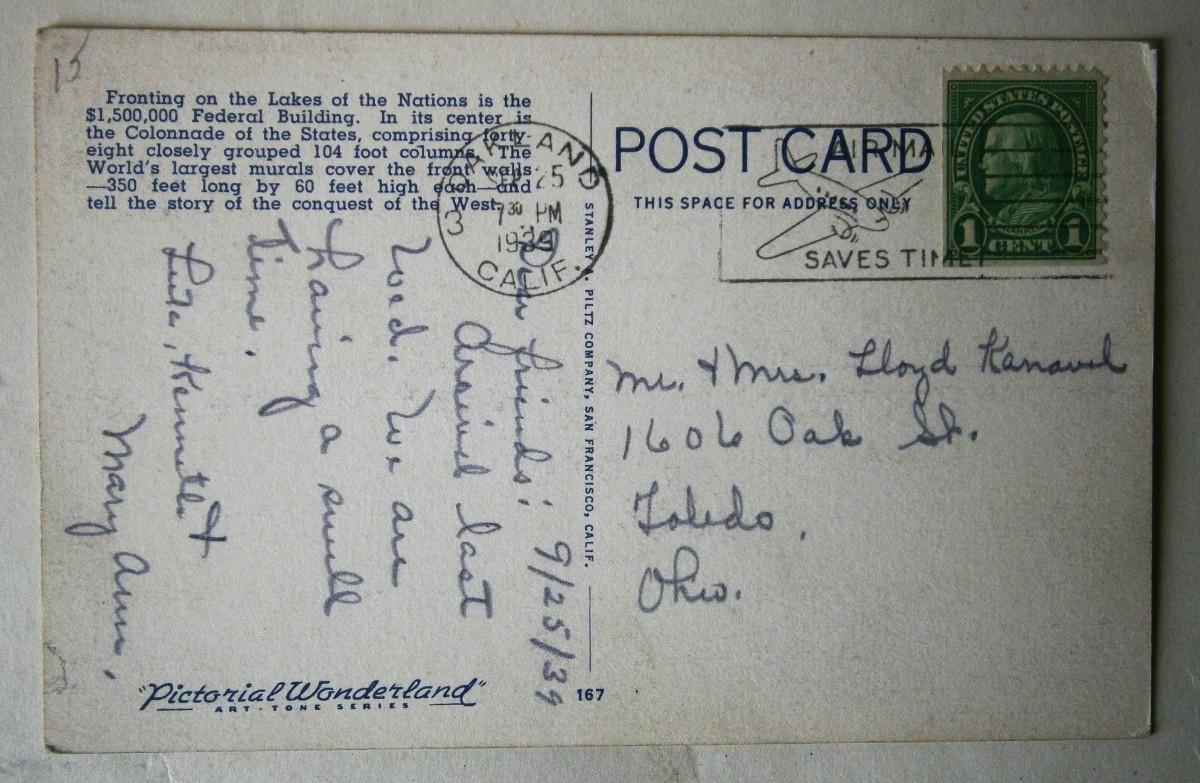 15
Fronting on the Lakes of the Nations is the
$1,500,000 Federal Building. In its center is
the Colonnade of the States, comprising forty-
eight closely grouped 104 foot columns. The
World's largest murals cover the front walls
—350 feet long by 60 feet high each—and
tell the story of the conquest of the West.
OAKLAND
25
7 30 PM
1939
3
CALIF.
POST CARD
THIS SPACE FOR ADDRESS ONLY
AIR MAIL
SAVES TIME!
UNITED STATES POSTAGE
1 CENT 1
9/25/39
Dear friends:
Arrived last
Wed. We are
having a swell
time.
Kenneth &
Mary Ann.
Mr. & Mrs. Lloyd Kanavel
1606 Oak St.
Toledo,
Ohio.
STANLEY A. PILTZ COMPANY, SAN FRANCISCO, CALIF.
"Pictorial Wonderland"
ART-TONE SERIES
167